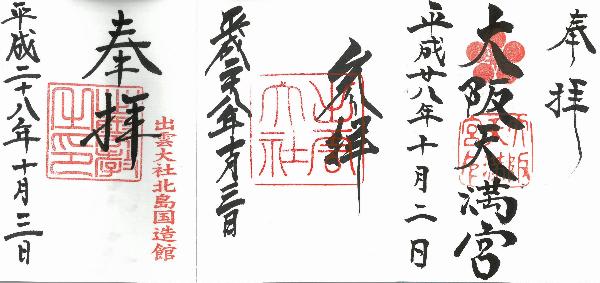 奉拝
大阪天満宮
平成廿八年十月二日
参拝
出雲大社
平成二十八年十月三日
出雲大社北島国造館
奉拝
平成二十八年十月三日